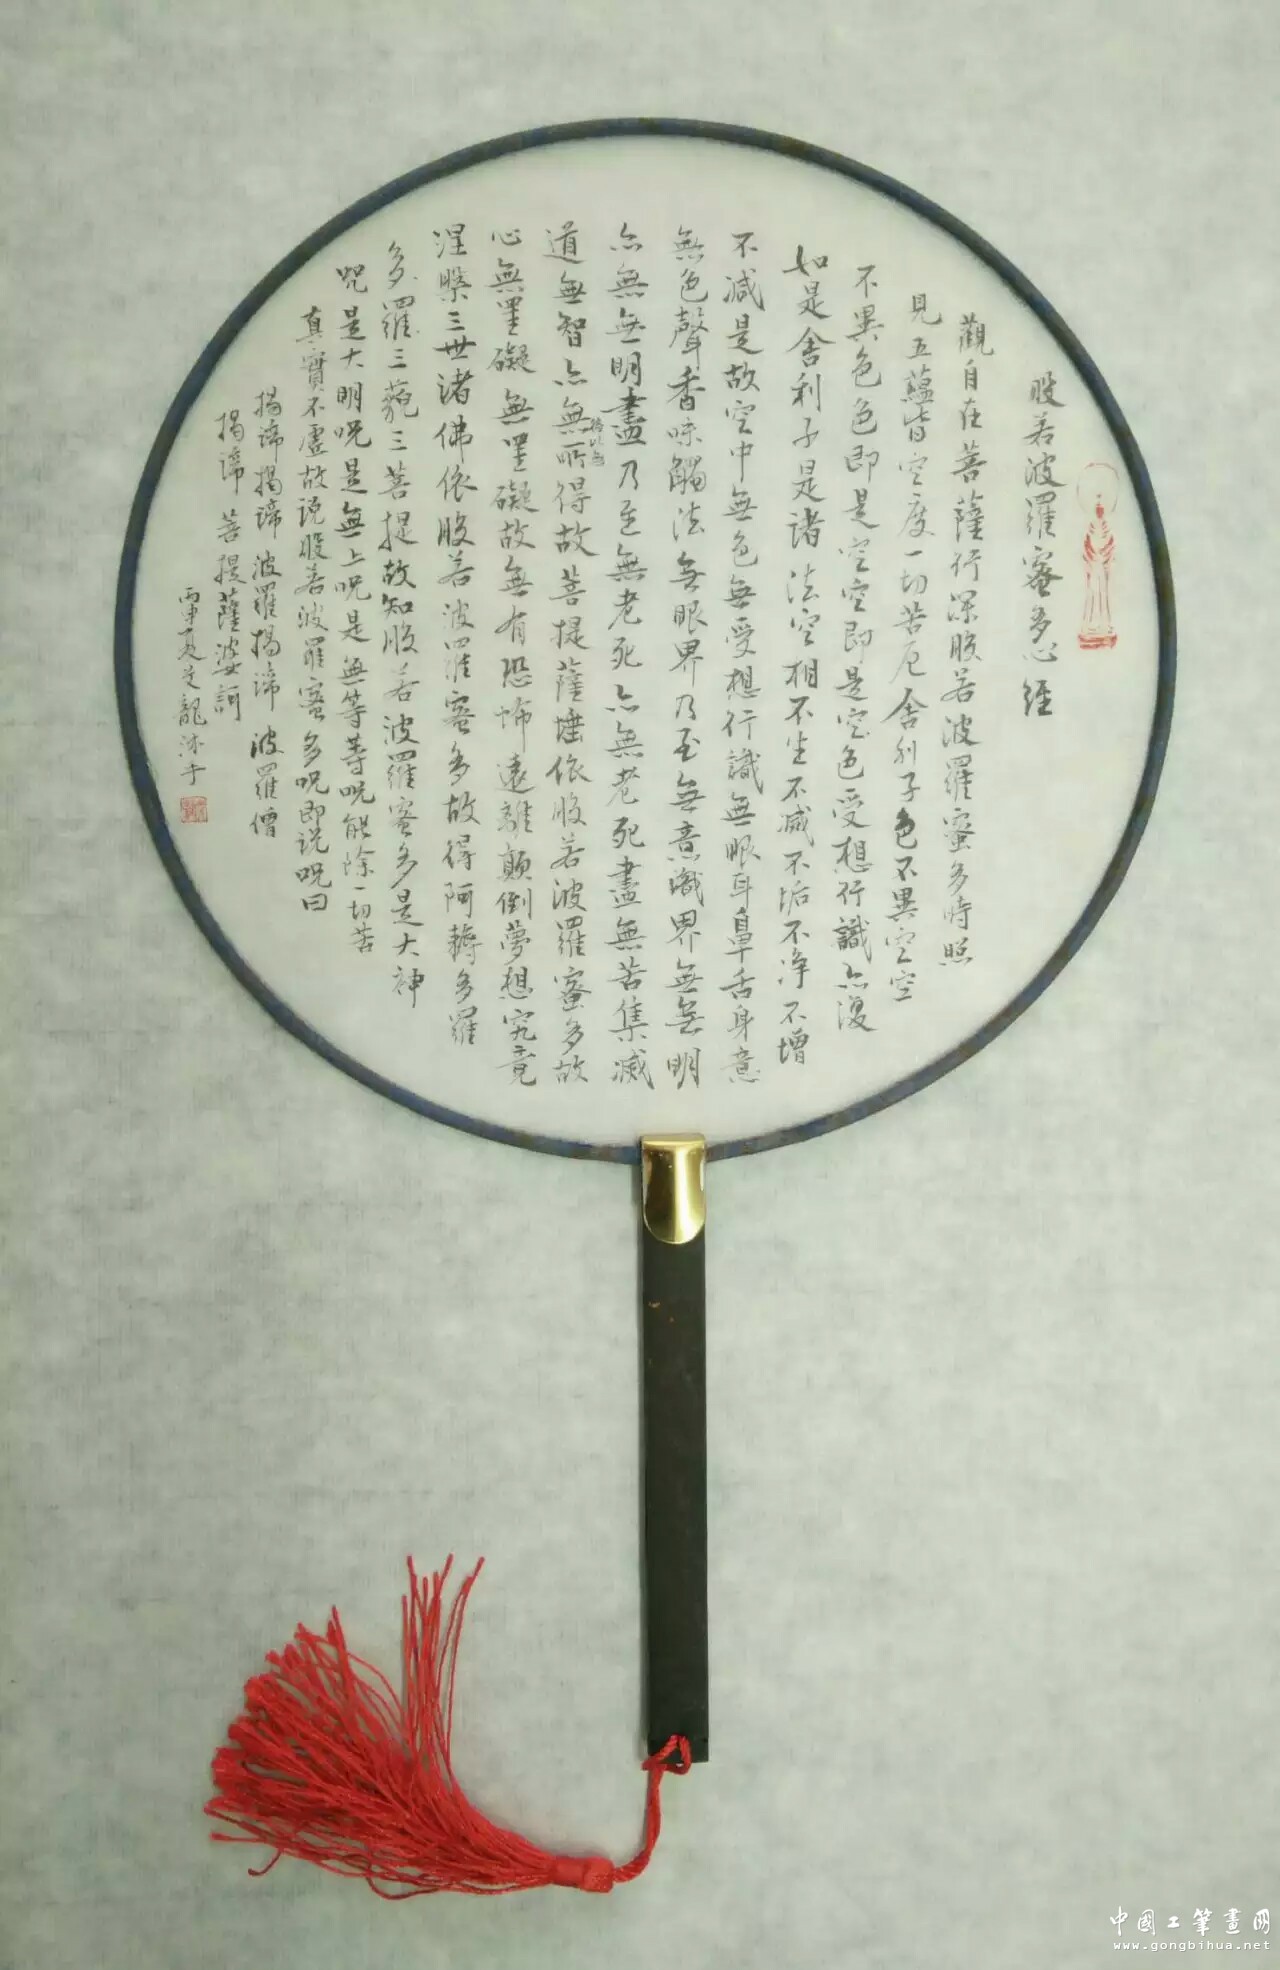 般若波羅蜜多心經
觀自在菩薩行深般若波羅蜜多時照
見五蘊皆空度一切苦厄舍利子色不異空空
不異色色即是空空即是空色受想行識亦復
如是舍利子是諸法空相不生不滅不垢不净不增
不減是故空中無色無受想行識無眼耳鼻舌身意
無色聲香味觸法無眼界乃至無意識界無無明
亦無無明盡乃至無老死亦無老死盡無苦集滅
道無智亦無所得故菩提薩埵依般若波羅蜜多故
心無罣礙無罣礙故無有恐怖遠離顛倒夢想究竟
涅槃三世諸佛依般若波羅蜜多故得阿耨多羅
多羅三藐三菩提故知般若波羅蜜多是大神
咒是大明咒是無上咒是無等等咒能除一切苦
真實不虛故说般若波羅蜜多咒即说咒曰
揭諦揭諦波羅揭諦波羅僧
揭諦菩提薩婆訶
丙申夏
中國工筆畫网
www.gongbihua.net